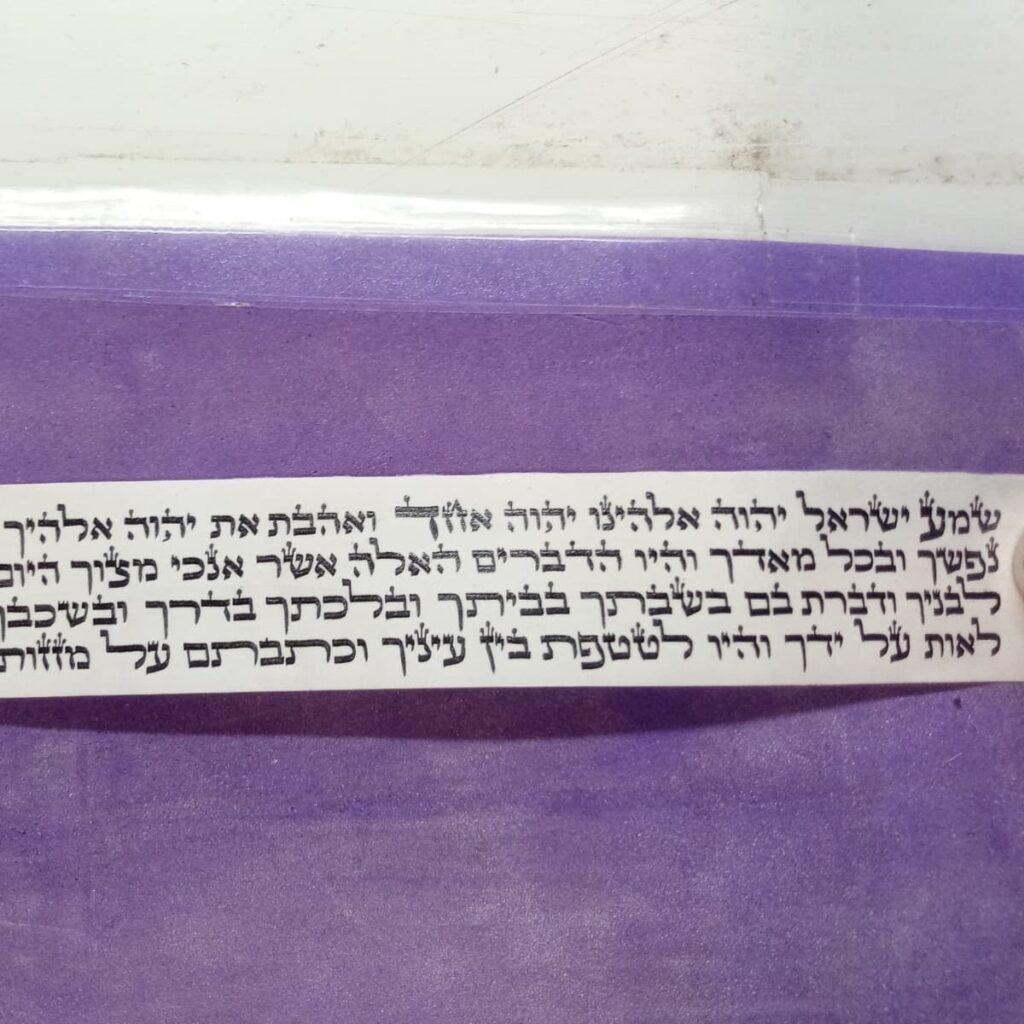 שמע ישראל יהוה אלהינו יהוה אחד ואהבת את יהוה אלהיך
נפשך ובכל מאדך והיו הדברים האלה אשר אנכי מצוך היום
לבניך ודברת בם בשבתך בביתך ובלכתך בדרך ובשכבך
לאות על ידך והיו לטטפת בין עיניך וכתבתם על מזזות